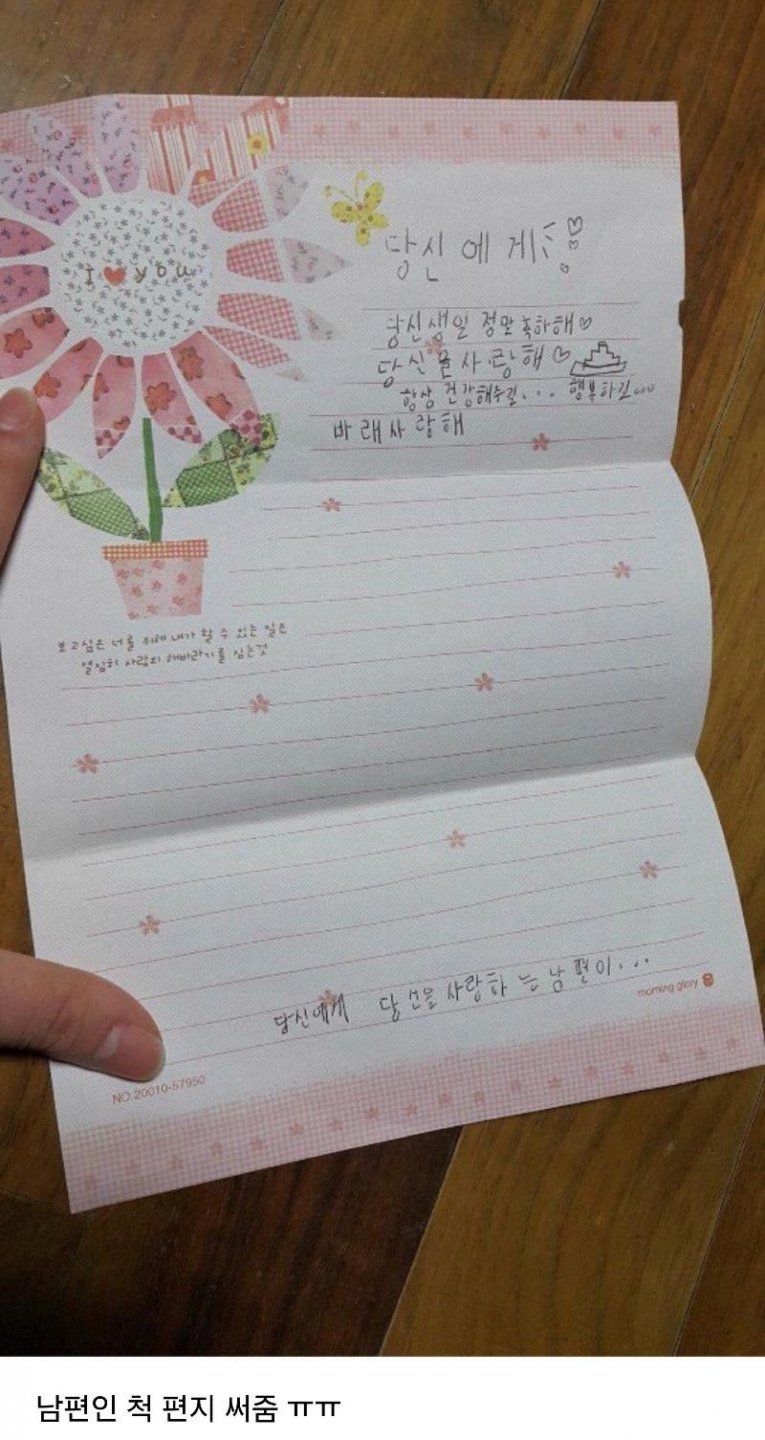 I ♥ you
당신에게
당신생일 정말 축하해♡
당신을 사랑해♡
항상 건강해주길... 행복하길...
바래사랑해
보고싶은 너를 위해 내가 할 수 있는 일은
열심히 사랑의 해바라기를 심는것
당신에게 당신을 사랑하는 남편이...
morning glory
NO.20010-57950
남편인 척 편지 써줌 ㅠㅠ